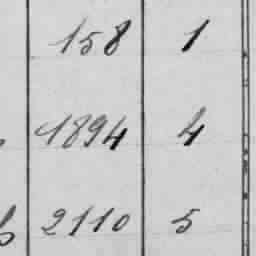 158 1
1894 4
2110 5